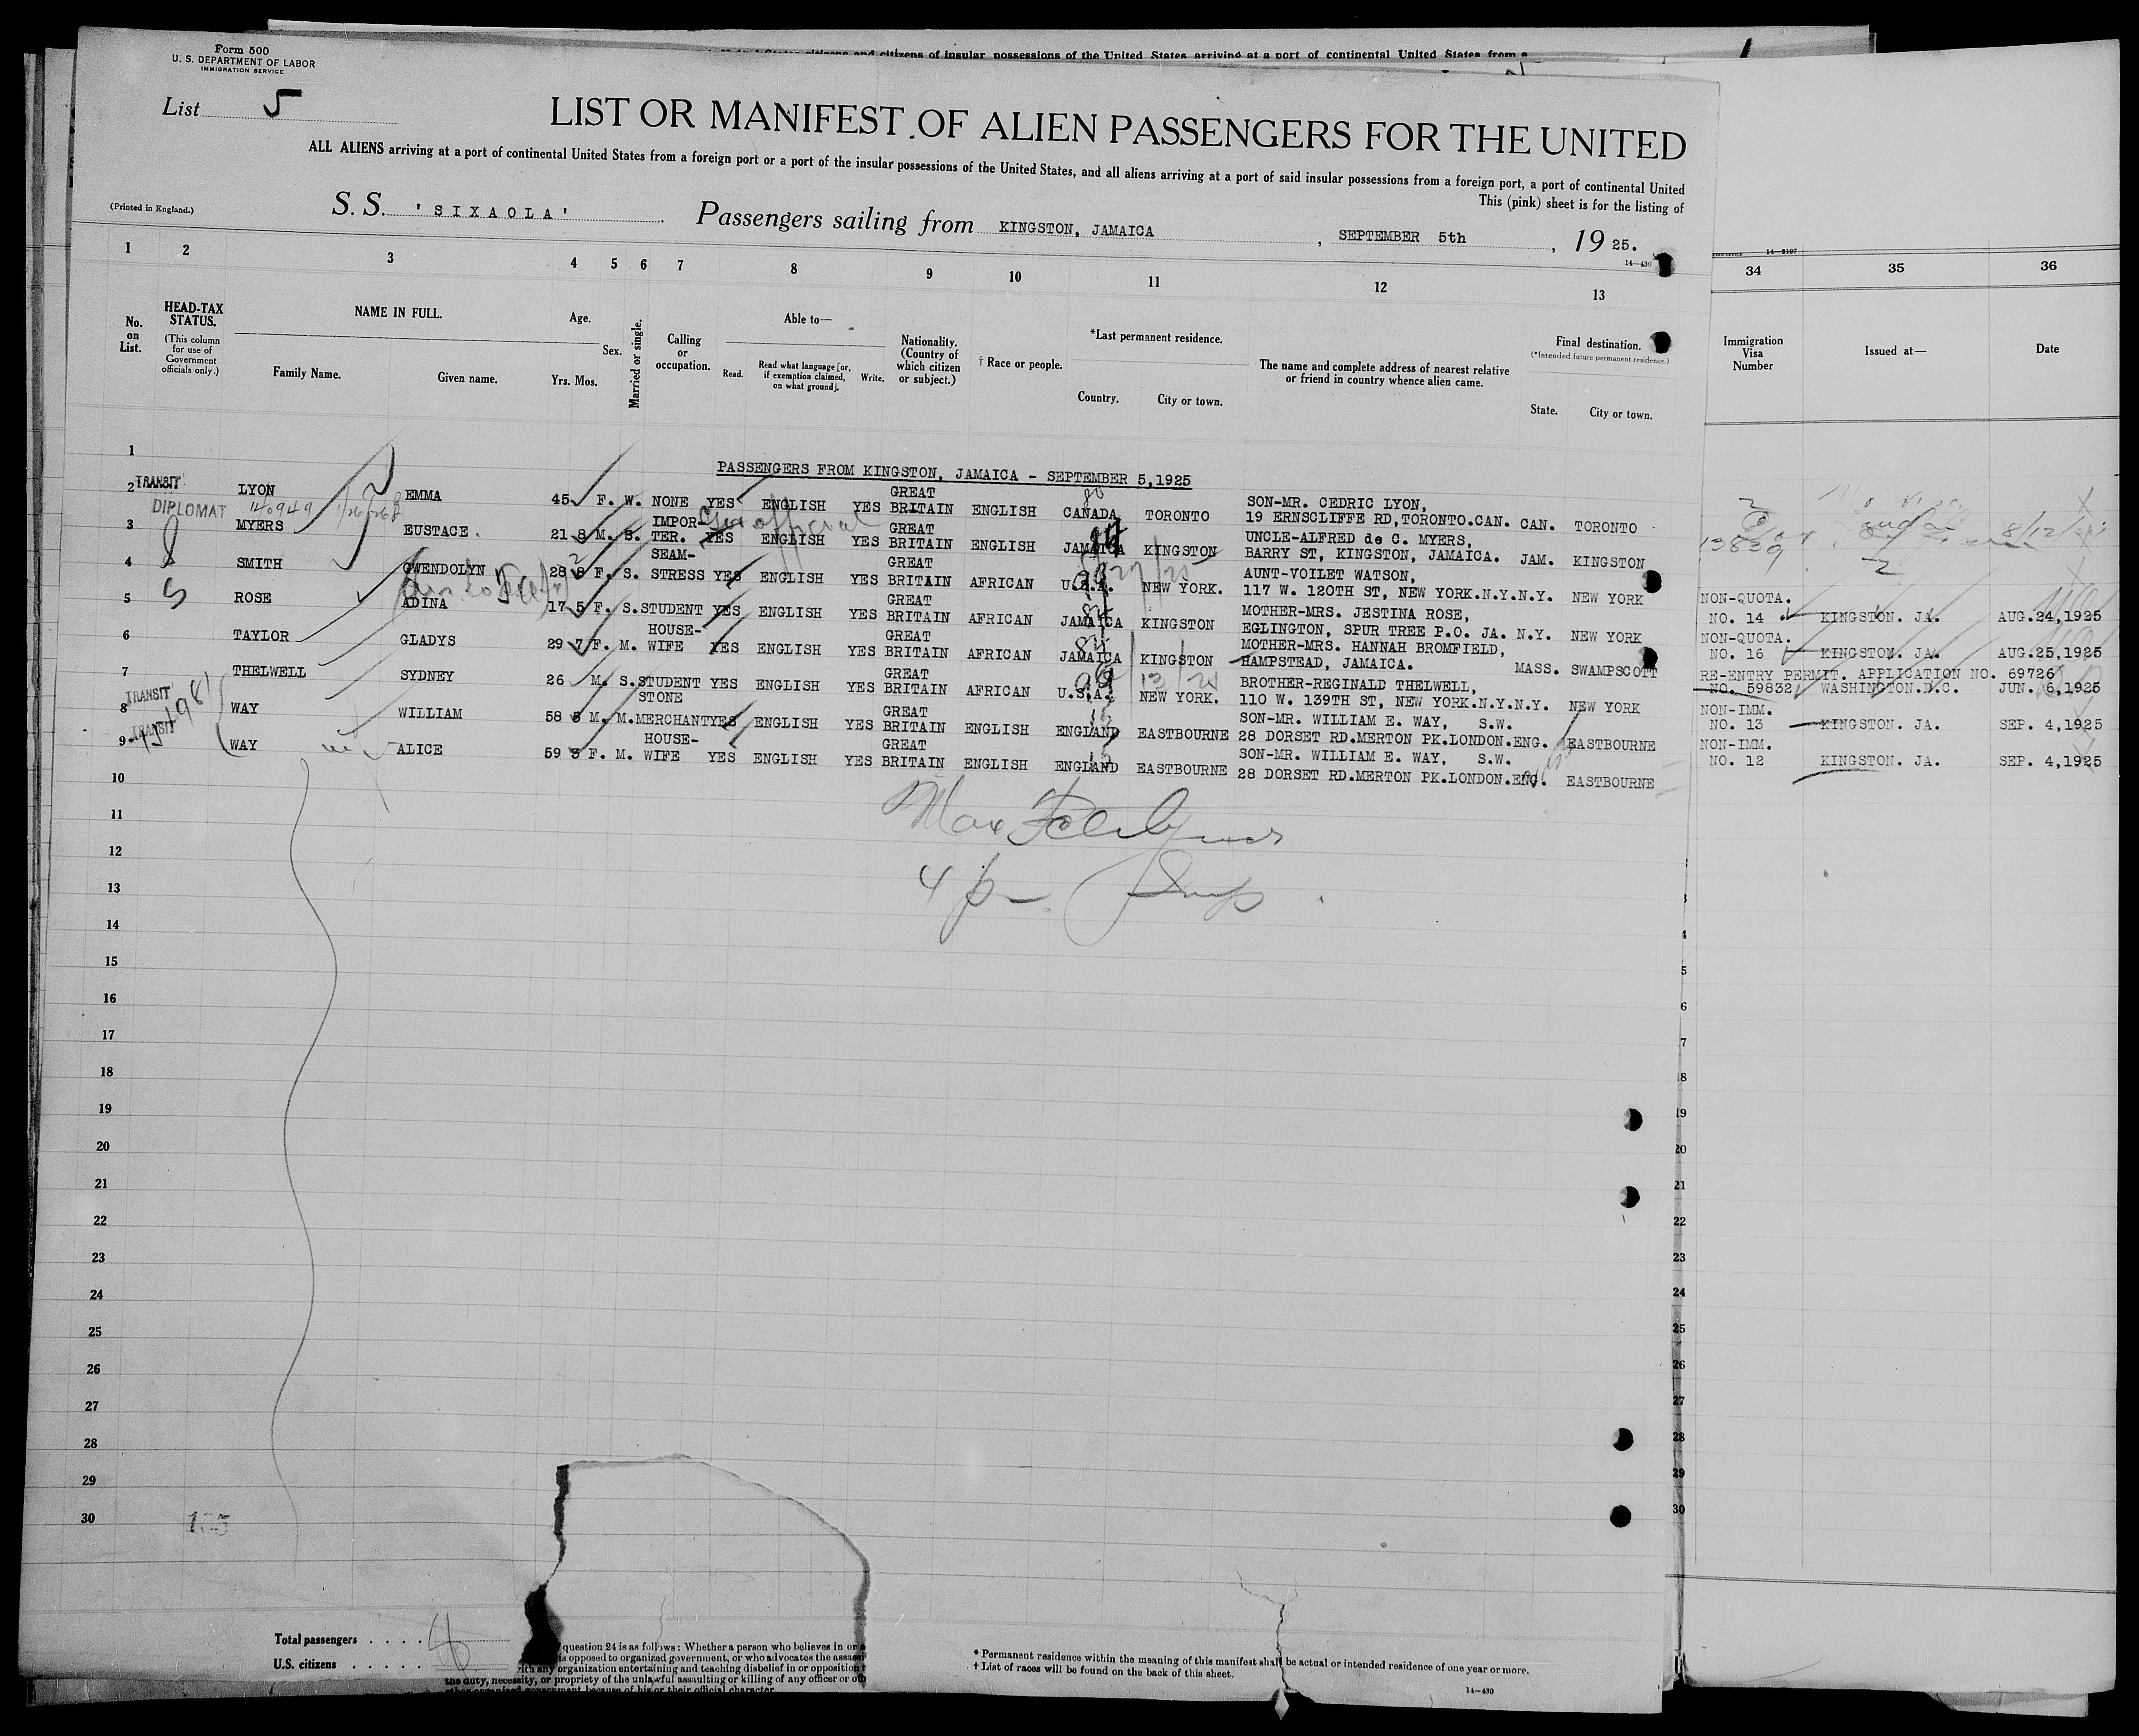 and citizens of insular possessions of the United States arriving at a port of continental United States from a
Form 500
U. S. DEPARTMENT OF LABOR
IMMIGRATION SERVICE
List 5
LIST OR MANIFEST OF ALIEN PASSENGERS FOR THE UNITED
ALL ALIENS arriving at a port of continental United States from a foreign port or a port of the insular possessions of the United States, and all aliens arriving at a port of said insular possessions from a foreign port, a port of continental United
This (pink) sheet is for the listing of
(Printed in England.)
S. S. 'SIXAOLA' Passengers sailing from KINGSTON, JAMAICA, SEPTEMBER 5th, 1925.
14—430
1 2 3 4 5 6 7 8 9 10 11 12 13 34 35 36
No. on List.
HEAD-TAX STATUS.
(This column for use of Government officials only.)
NAME IN FULL.
Family Name. Given name.
Age.
Yrs. Mos.
Sex.
Married or single.
Calling or occupation.
Able to—
Read. Read what language [or, if exemption claimed, on what ground]. Write.
Nationality. (Country of which citizen or subject.)
† Race or people.
*Last permanent residence.
Country. City or town.
The name and complete address of nearest relative or friend in country whence alien came.
Final destination.
(*Intended future permanent residence.)
State. City or town.
Immigration Visa Number
Issued at—
Date
1
PASSENGERS FROM KINGSTON, JAMAICA - SEPTEMBER 5,1925
2 TRANSIT LYON EMMA 45 F. W. NONE YES ENGLISH YES GREAT BRITAIN ENGLISH CANADA TORONTO SON-MR. CEDRIC LYON, 19 ERNSCLIFFE RD,TORONTO.CAN. CAN. TORONTO
3 DIPLOMAT MYERS EUSTACE. 21 8 M. S. IMPOR-TER. YES ENGLISH YES GREAT BRITAIN ENGLISH JAMAICA KINGSTON UNCLE-ALFRED de C. MYERS, BARRY ST, KINGSTON, JAMAICA. JAM. KINGSTON 13839 8/12/
4 SMITH GWENDOLYN 28 8 F. S. SEAM-STRESS YES ENGLISH YES GREAT BRITAIN AFRICAN U.S.A. NEW YORK. AUNT-VOILET WATSON, 117 W. 120TH ST, NEW YORK.N.Y. N.Y. NEW YORK
5 ROSE ADINA 17 5 F. S. STUDENT YES ENGLISH YES GREAT BRITAIN AFRICAN JAMAICA KINGSTON MOTHER-MRS. JESTINA ROSE, EGLINGTON, SPUR TREE P.O. JA. N.Y. NEW YORK NON-QUOTA. NO. 14 KINGSTON. JA. AUG.24,1925
6 TAYLOR GLADYS 29 7 F. M. HOUSE-WIFE YES ENGLISH YES GREAT BRITAIN AFRICAN JAMAICA KINGSTON MOTHER-MRS. HANNAH BROMFIELD, HAMPSTEAD, JAMAICA. MASS. SWAMPSCOTT NON-QUOTA. NO. 16 KINGSTON. JA. AUG.25,1925
7 THELWELL SYDNEY 26 M. S. STUDENT YES ENGLISH YES GREAT BRITAIN AFRICAN U.S.A. NEW YORK. BROTHER-REGINALD THELWELL, 110 W. 139TH ST, NEW YORK.N.Y. N.Y. NEW YORK RE-ENTRY PERMIT. APPLICATION NO. 69726 NO. 59832 WASHINGTON.D.C. JUN. 6,1925
8 TRANSIT WAY WILLIAM 58 5 M. M. STONE MERCHANT YES ENGLISH YES GREAT BRITAIN ENGLISH ENGLAND EASTBOURNE SON-MR. WILLIAM E. WAY, S.W. 28 DORSET RD.MERTON PK.LONDON.ENG. EASTBOURNE NON-IMM. NO. 13 KINGSTON. JA. SEP. 4,1925
9 TRANSIT WAY ALICE 59 5 F. M. HOUSE-WIFE YES ENGLISH YES GREAT BRITAIN ENGLISH ENGLAND EASTBOURNE SON-MR. WILLIAM E. WAY, S.W. 28 DORSET RD.MERTON PK.LONDON.ENG. EASTBOURNE NON-IMM. NO. 12 KINGSTON. JA. SEP. 4,1925
10
11
12
13
14
15
16
17
18
19
20
21
22
23
24
25
26
27
28
29
30
Total passengers . . . .
U.S. citizens . . . . .
question 24 is as follows: Whether a person who believes in or
is opposed to organized government, or who advocates the
with any organization entertaining and teaching disbelief in or opposition
the duty, necessity, or propriety of the unlawful assaulting or killing of any officer or
other organized government because of his or their official character
* Permanent residence within the meaning of this manifest shall be actual or intended residence of one year or more.
† List of races will be found on the back of this sheet.
14—430